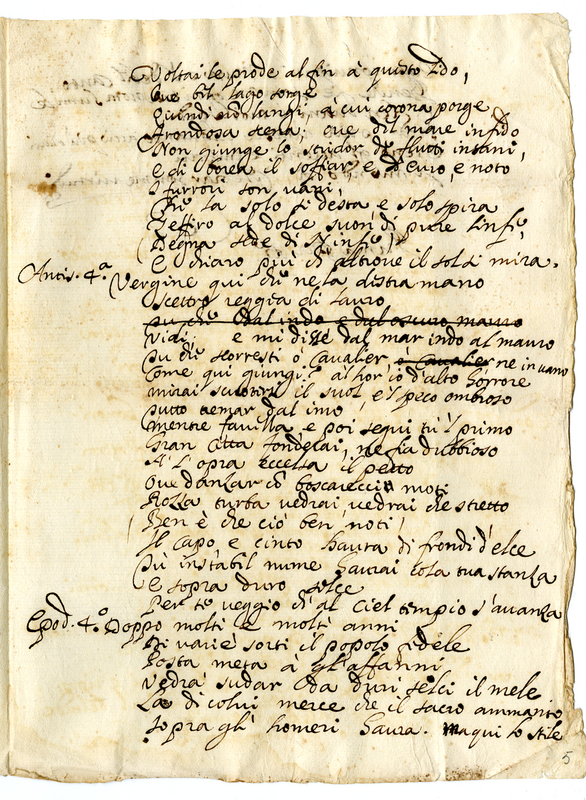 Voltai le prode al fin à questo lido,
Ove bil lago sorge
Quindi nõ lungi, à cui corona porge
Frondosa scena; ove del mare infido
Non giunge lo stridor de flutti insani,
E di borea il soffiar, e d'euro, e noto
I furrori son vani,
Chè la solo si desta e solo spira
Zeffiro al dolce suon di pure linfe,
(Degna sede di Ninfe)
E chiaro più ch'altrove il sol si mira.
Antis. 4.ª Vergine qui chè ne la destra mano
Scettro reggia di lauro
Vidi, e mi disse dal mar indo al mauro
Tu che scorresti ò Cavalier, ò Cavalier ne in vano
Come qui giungi? al'hor io d'alto horrore
Mirai scuotirsi il suol, e'l speco ombroso
Tutto tremar dal imo
Mentre favilla e poi segui tu 'l primo
Gran Citta fonderai, ne sia dubbioso
A' l'opra eccelsa il petto
Ove danzar cõ boscarecci moti
Rozza turba vedrai, vedrai che stretto
(Ben è che ciò ben noti)
Il Capo, e cinto havrà di frondi d'elce
Tù instabil nume havrai cola tua stanza
E sopra duro selce
Per te veggio ch'al Ciel tempio s'avanza
Epod. 4.º Doppo molti e molti anni
Di varie sorti il popolo fidele
Posta meta à gl'affanni
Vedrà sudar da duri selci il mele
La di colui merce che il sacro ammanto
Sopra gli homeri havrà. Ma qui lo stile
5